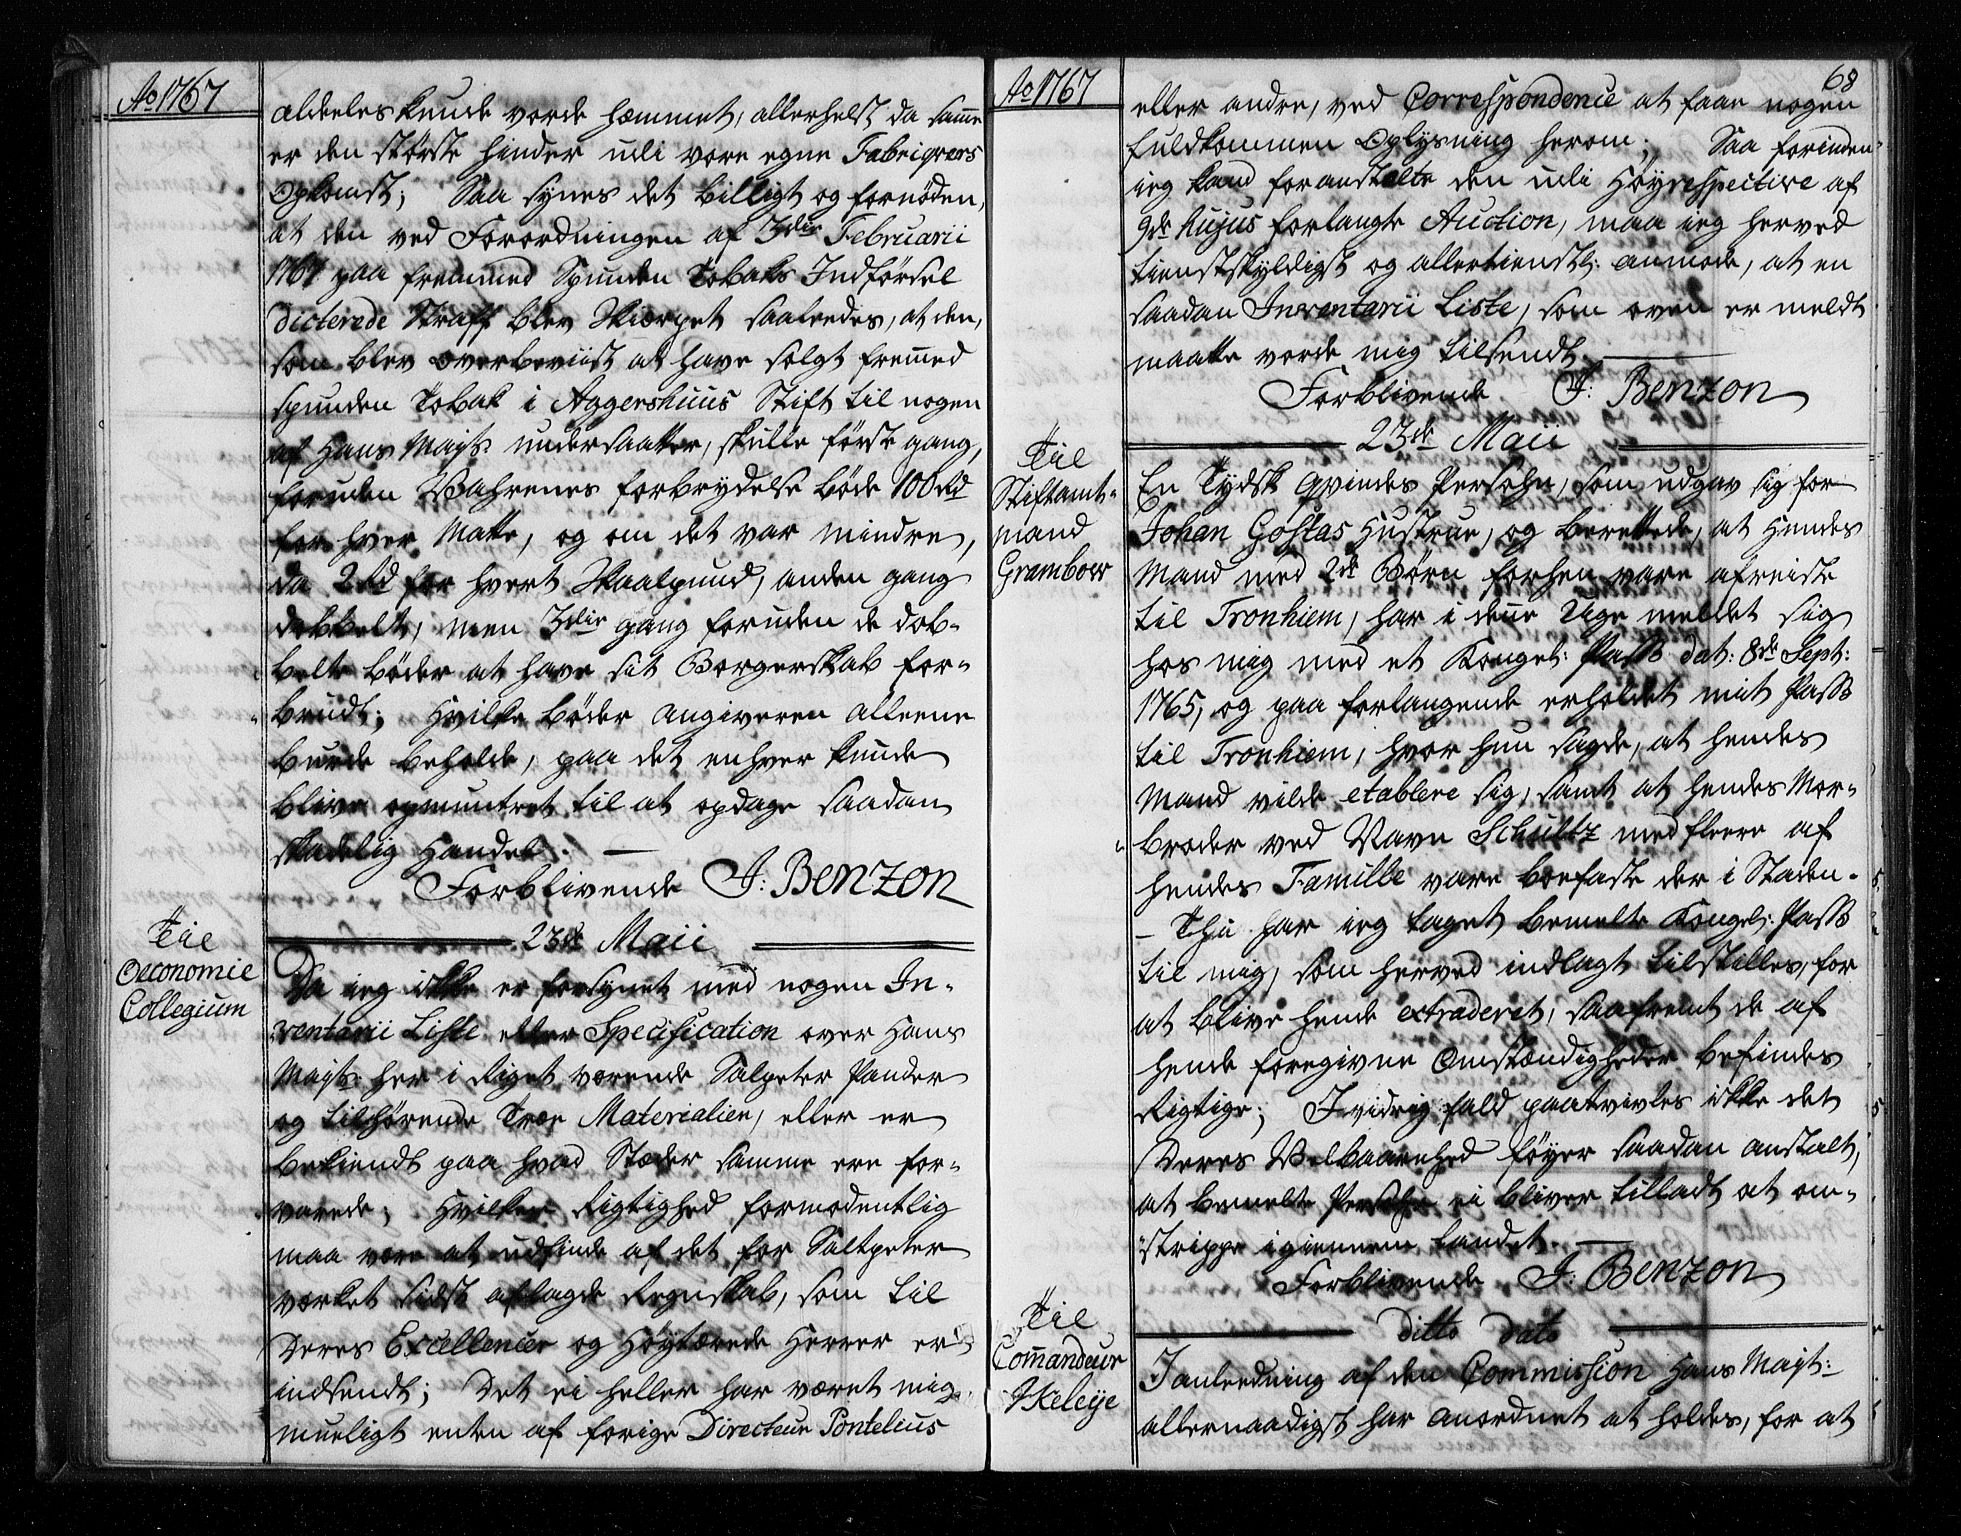 Ao 1767
aldeeles kunde vorde hæmmet, allerhelst da samme
er den største hinder udi vore egne Fabriqvers
Opkomst; Saa synes det billigt og fornøden,
at den ved Forordningen af 3die Februarii
1761 paa fremmed Spunden Tobaks Indførsel
dicterede Straff blev skiærpet saaledes, at den,
som blev overbeviist at have solgt fremed
spunden Tobak i Aggershuus Stift til nogen
af Hans Mayts: undersaatter, skulle første gang,
foruden Wahrenes forbrydelse bøde 100 Rd
for hver Matte, og om det var mindre,
da 2 Rd for hvert Skaalpund, anden gang
dobbelt, men 3die gang foruden de dob-
belte bøder at have sit Borgerskab for-
brudt; Hvilke bøder angiveren alleene
burde beholde, paa det enhver kunde
blive opmuntret til at opdage saadan
skadelig Handel. —
Forblivende J: Benzon
23de Maii
Til
Oeconomie
Collegium
Da ieg ikke er forsynet med nogen In-
ventarii Liste eller Specification over Hans
Mayts: her i Riget værende Salpeter Pander
og tilhørende Træe Materialier, eller er
bekiendt paa hvad Stæder samme ere for-
varede; Hvilken Rigtighed formodentlig
maa være at udfinde af det for Saltpeter
værket sidst aflagde Regnskab, som til
Deres Excellencer og Høytærede Herrer er
indsendt; Det ei heller har været mig
mueligt enten af forige Directeur Pontelius
Ao 1767
68
eller andre, ved Correspondence at faae nogen
fuldkommen Oplysning herom; Saa forinden
ieg kand foranstalte den udi Høyrespective af
9de hujus forlangte Auction, maa ieg herved
tienstskyldigst og allertienstl: anmode, at en
saadan Inventarii Liste, som oven er meldt
maatte vorde mig tilsendt.
Forblivende J: Benzon
23de Maii
Til
Stiftamt-
mand
Grambow
En Tydsk Qvindes Persohn, som udgav sig for
Johan Gostas Hustrue, og berettede, at hendes
Mand med 2de Børn forhen vare afreiste
til Tronhiem, har i denne Uge meldet sig
hos mig med et Kongel: Pass dat: 8de Sept:
1765, og paa forlangende erholdet mit Pass
til Tronhiem, hvor hun sagde, at hendes
Mand vilde etablere sig, samt at hendes Mor-
broder ved Navn Schultz med fleere af
hendes Famille vare boefaste der i Staden.
— Thi har ieg taget bemelte Kongel: Pass
til mig, som herved indlagt tilstilles, for
at blive hende extraderet, saafremt de af
hende foregivne Omstændigheder befindes
Rigtige; I vidrig fald paatvivles ikke det
Deres Velbaarenhed føyer saadan anstalt,
at bemelte Persohn ei bliver tilladt at om-
strippe igiennem Landet. —
Forblivende J: Benzon
ditto dato
Til
Comandeur
Skeleye
I anleedning af den Commission Hans Mayt:
allernaadigst har anordnet at holdes, for at